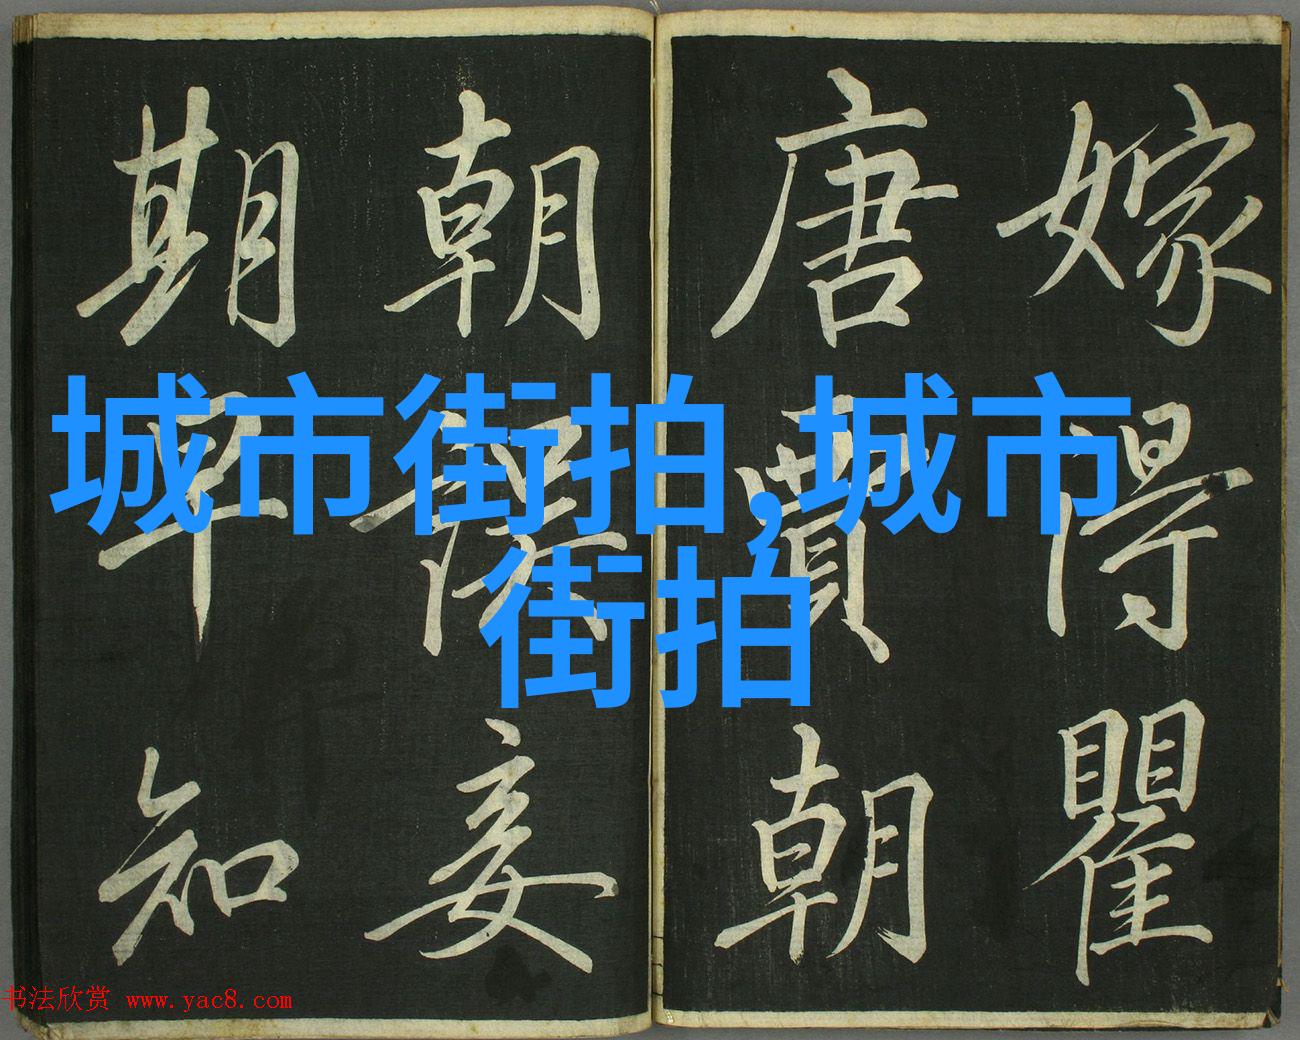 嫁得瞿
唐賈朝
朝誤妾
期早知
城市街拍,城市
街拍
书法欣赏 www.yac8.com